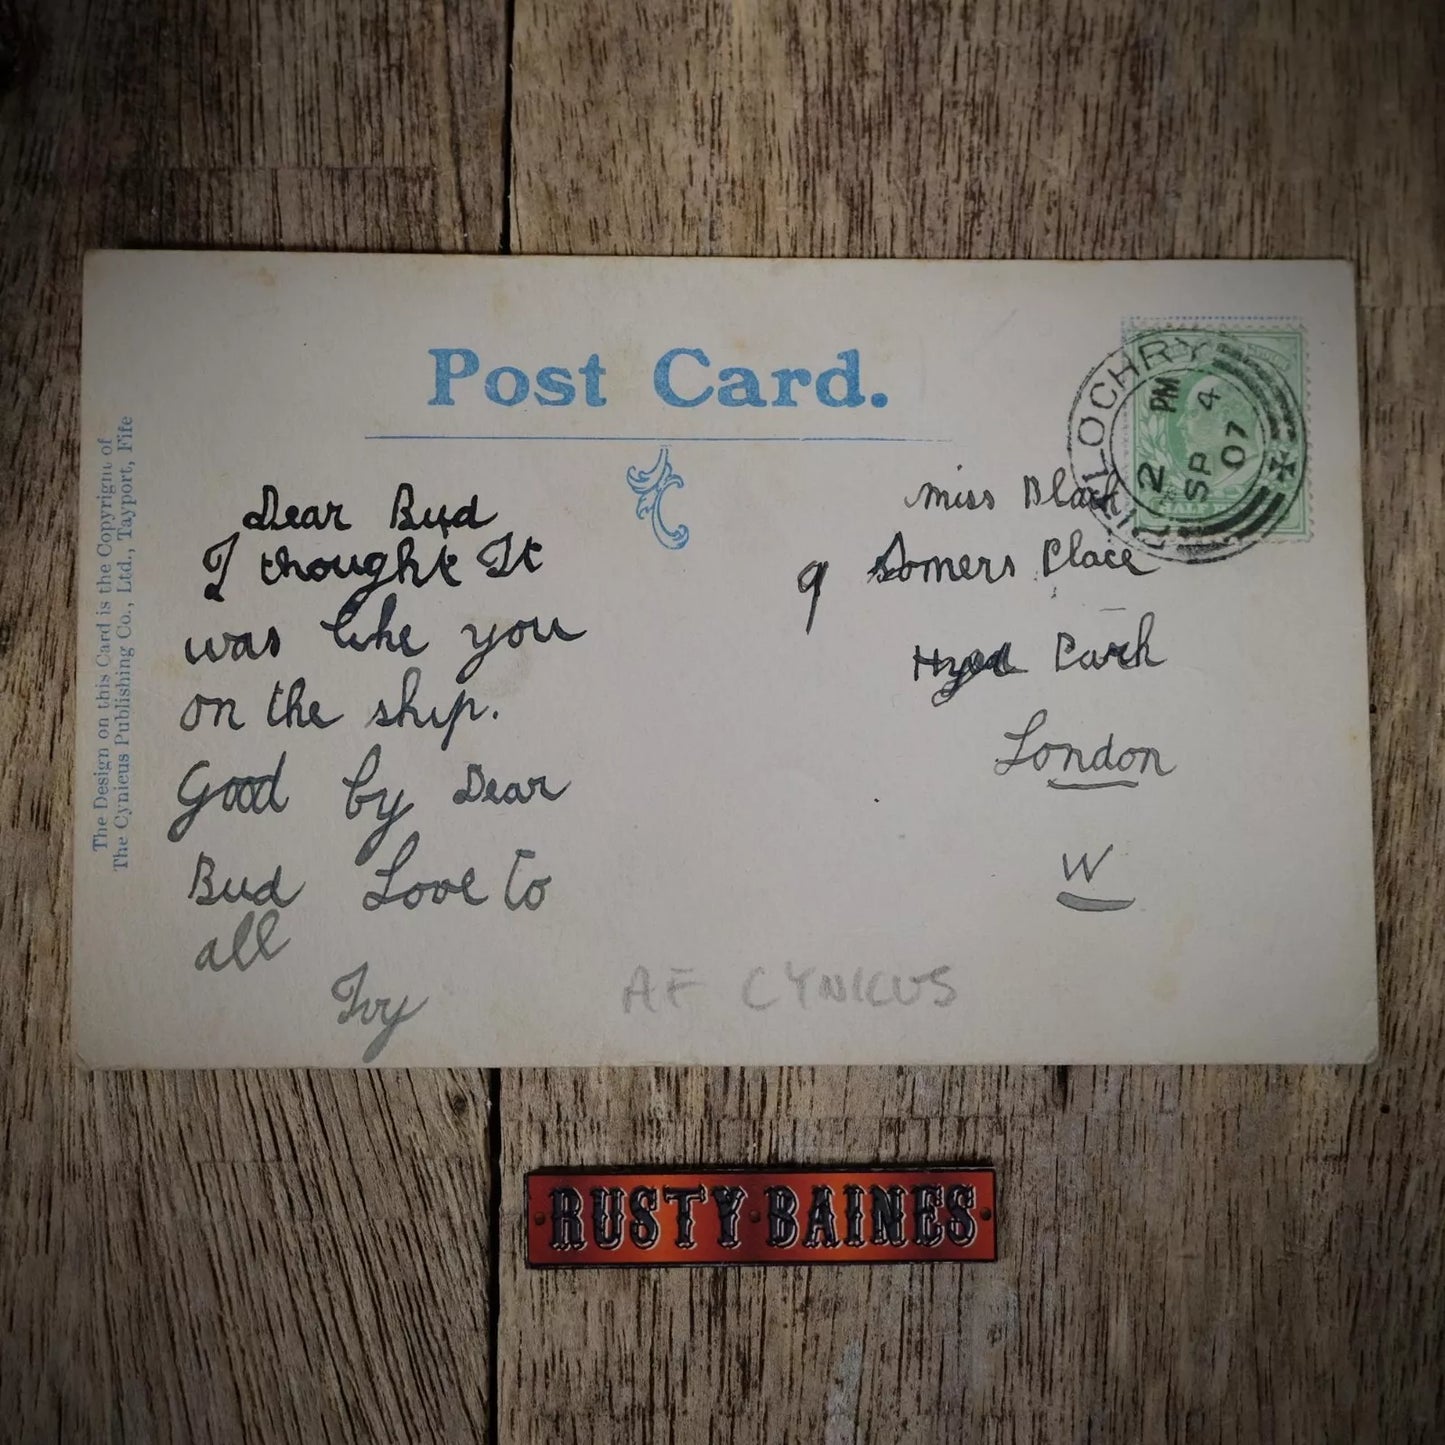 Post Card.
The Design on this Card is the Copyright of
The Cynicus Publishing Co., Ltd., Tayport, Fife
Dear Bud
I thought It
was like you
on the ship.
Good by Dear
Bud Love to
all
Ivy
Miss Black
9 Somers Place
Hyde Park
London
W
AF CYNICUS
PITLOCHRY
2 PM
SP 4
07
HALF
RUSTY BAINES